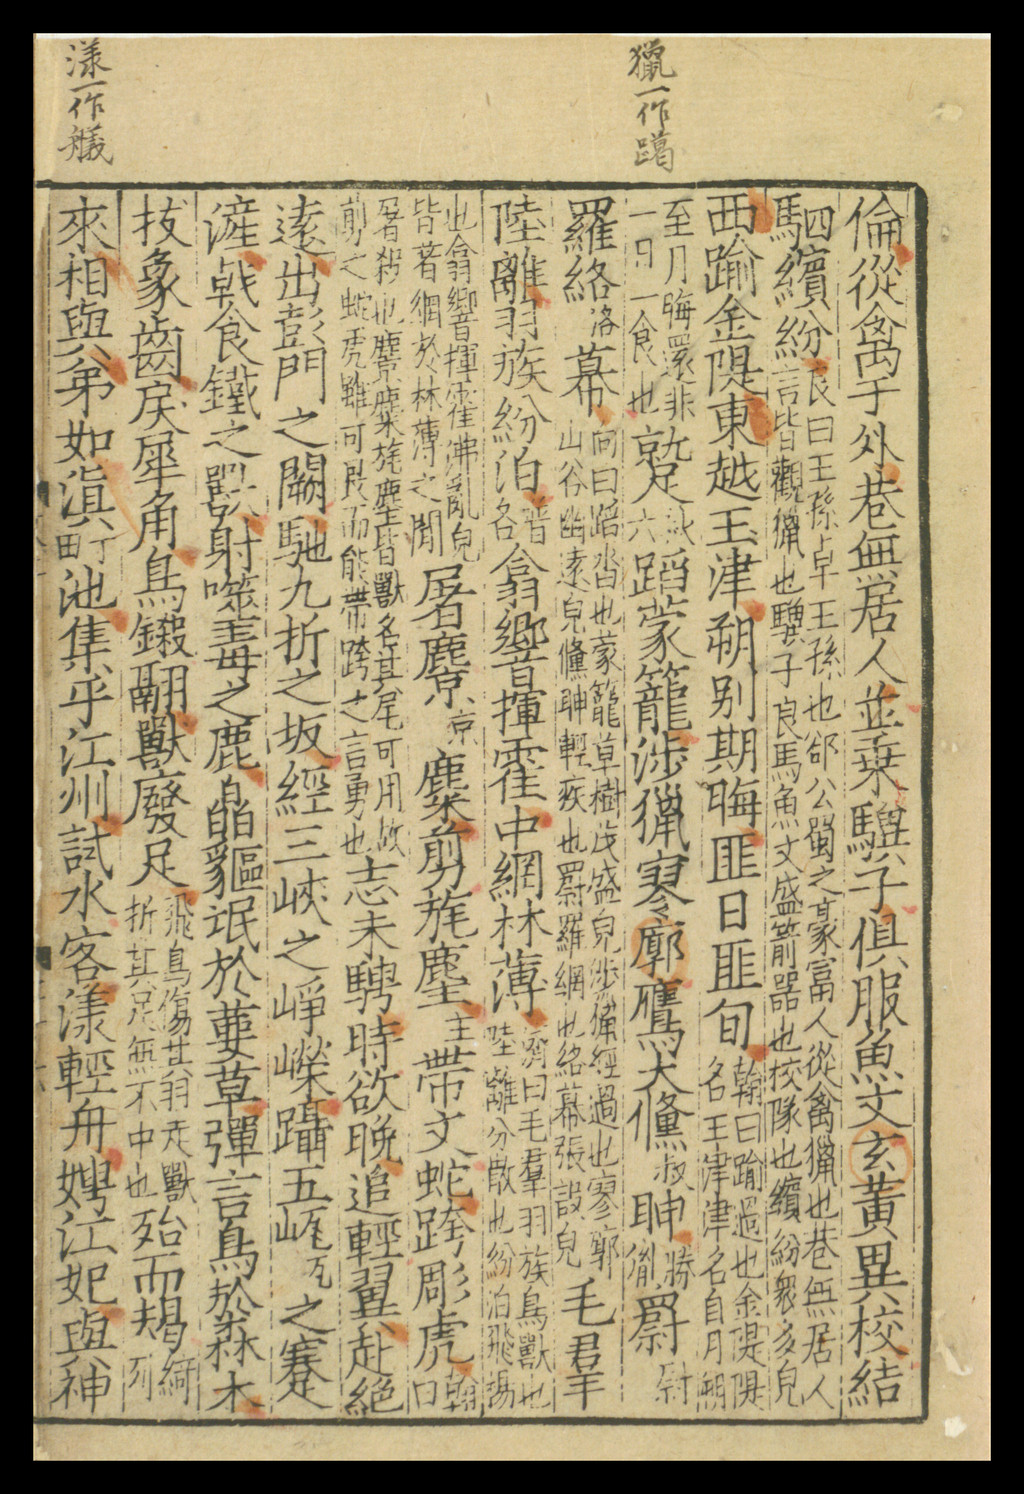 獵一作躐
漾一作艤
倫從禽于外巷無居人並乗驥子俱服魚文玄黄異校結
駟繽紛良曰王孫卓王孫也郤公蜀之豪富人從禽獵也巷無居人言皆觀獵也驥子良馬魚文盛箭器也校隊也繽紛衆多皃
西踰金隄東越玉津朔别期晦匪日匪旬翰曰踰過也金隄隄名玉津津名自月朔
至月晦還非一日一食也就六蹈蒙籠涉獵寥廓鷹犬儵叔胂勝胤罻尉
羅絡洛幕向曰蹈沓也蒙籠草樹茂盛皃涉獵經過也寥廓山谷幽遠皃儵胂輕疾也罻羅網也絡幕張設皃毛羣
陸離羽族紛泊普各翕響揮霍中網林薄濟曰毛羣羽族鳥獸也陸離分散也紛泊飛揚
也翕響揮霍沸亂皃皆著網於林薄之閒屠麖京麋剪旄麈主帶文蛇跨彫虎翰曰
屠殺也麖麋旄麈皆獸名其尾可用故剪之蛇虎雖可畏而能帶跨之言勇也志未騁時欲晚追輕翼赴絶
遠出彭門之闕馳九折之坂經三峽之崢嶸躡五屼兀之蹇
滻戟食鐵之獸射噬毒之鹿皛貙氓於葽草彈言鳥於森木
拔象齒戾犀角鳥鎩翮獸廢足飛鳥傷其羽走獸折其足無不中也殆而朅綺列
來相與第如滇丁田池集乎江州試水客漾輕舟娉江妃與神